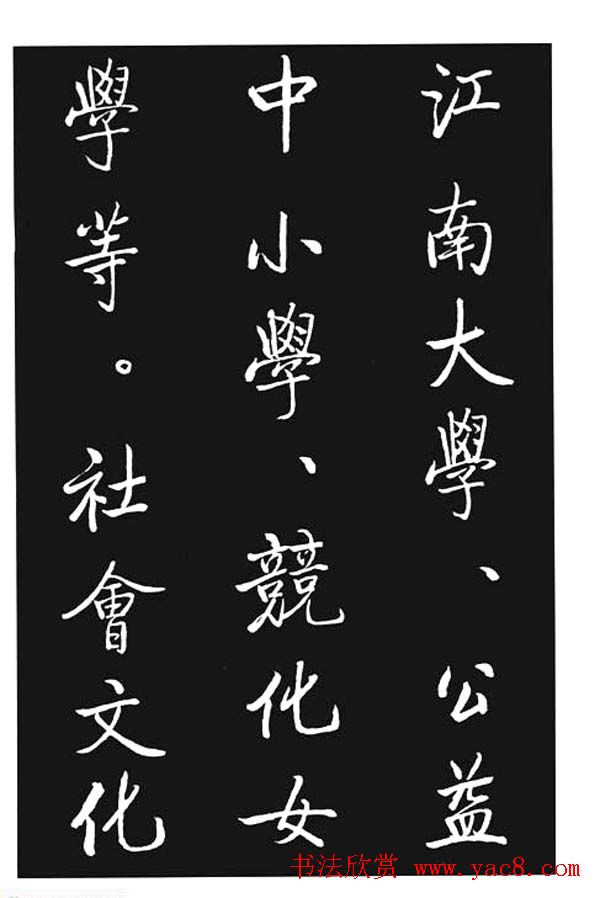 江南大學、公益
中小學、競化女
學等。社會文化
书法欣赏 www.yac8.com